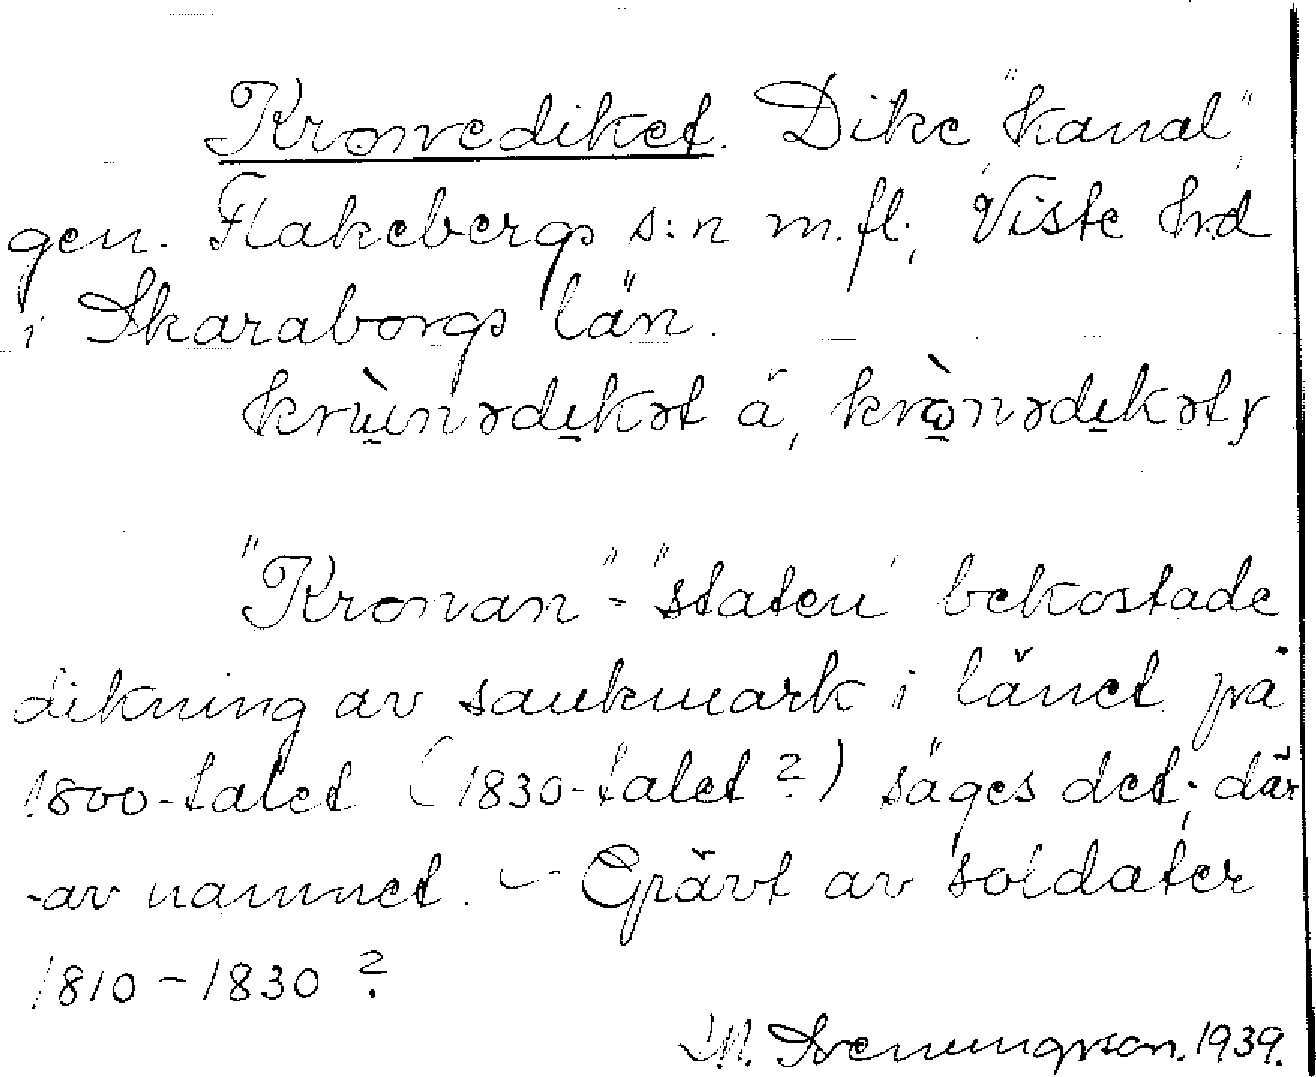 Kronediket. Dike, "kanal",
gen. Flakebergs s:n m.fl., Viste hd
i Skaraborgs län.
krùinədikət ä, krò̤nədikət
"Kronan" = "staten" bekostade
dikning av sankmark i länet på
1800-talet (1830-talet?) säges det; där
-av namnet. – Grävt av soldater
1810-1830?
Sveningson. 1939.